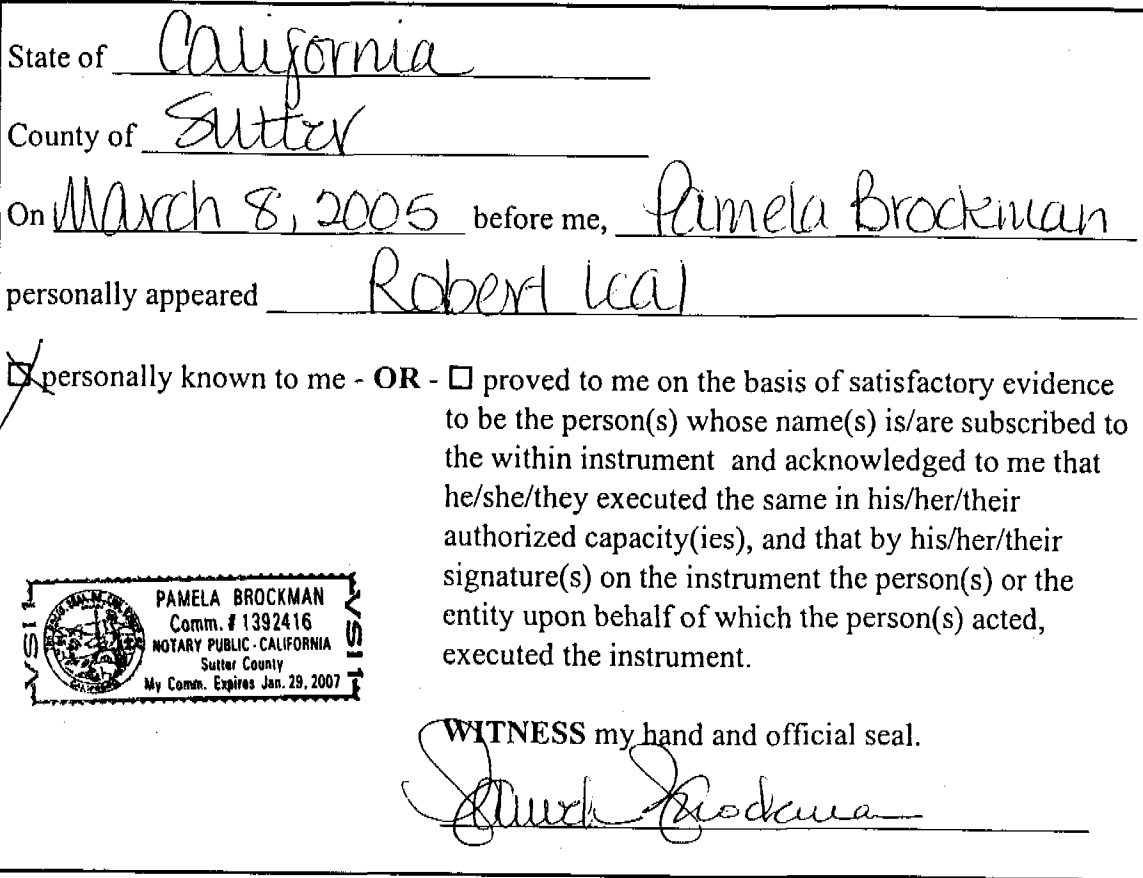 State of California
County of Sutter
On March 8, 2005 before me, Pamela Brockman
personally appeared Robert Ical
personally known to me - OR - ☐ proved to me on the basis of satisfactory evidence
to be the person(s) whose name(s) is/are subscribed to
the within instrument and acknowledged to me that
he/she/they executed the same in his/her/their
authorized capacity(ies), and that by his/her/their
signature(s) on the instrument the person(s) or the
entity upon behalf of which the person(s) acted,
executed the instrument.
PAMELA BROCKMAN
Comm. # 1392416
NOTARY PUBLIC - CALIFORNIA
Sutter County
My Comm. Expires Jan. 29, 2007
WITNESS my hand and official seal.
Pamela Brockman